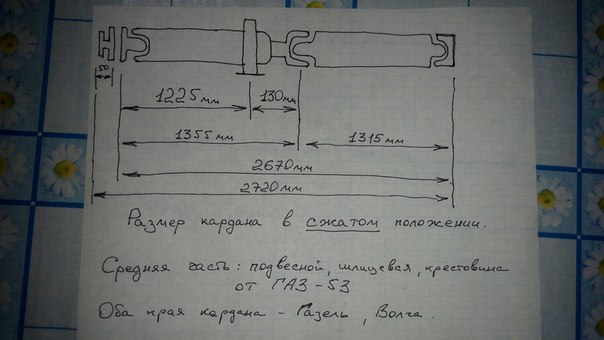 50
1225мм
130мм
1355мм
1315мм
2670мм
2720мм
Размер кардана в сжатом положении.
Средняя часть: подвесной, шлицевая, крестовина
от ГАЗ-53
Оба края кардана - Газель, Волга.